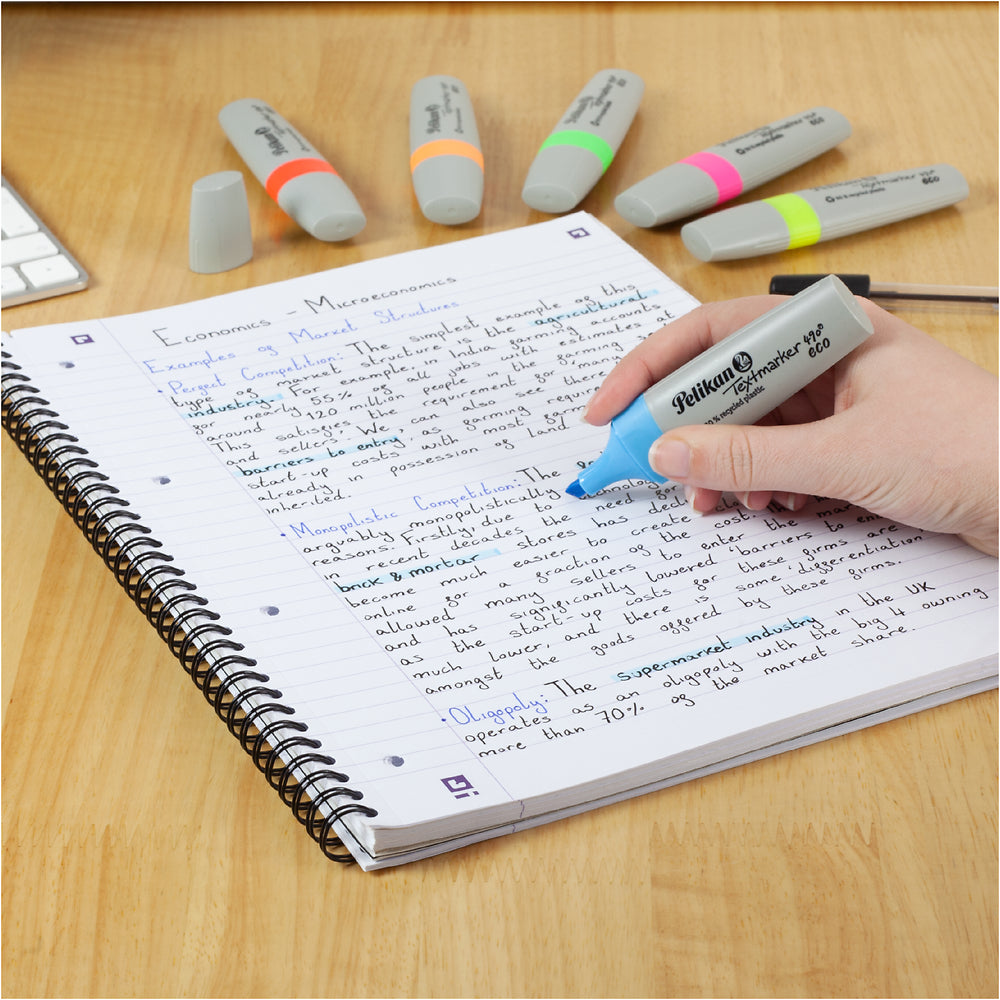 Pelikan
Pelikan
Pelikan
Textmarker 490
eco
Pelikan Textmarker
eco
Pelikan
Textmarker 490
eco
% recycled plastic
Economics - Microeconomics
Examples of Market Structures
· Perfect Competition: The simplest example of this
type of market structure is the agricultural
industry. For example, India farming accounts
for nearly 55% of all jobs with estimates at
around 120 million people in the farming
This satisfies the requirement for many
and sellers. We can also see there
barriers to entry, as most farming
start-up costs with farming requir
already in possession of land
inherited.
· Monopolistic Competition: The
arguably monopolistically
reasons. Firstly, due to technolog
in recent decades the need for
brick & mortar stores has decl
become much easier to create
online for a fraction of the cost.
allowed many sellers to enter the mar
and has significantly lowered 'barriers to en
as the start-up costs for these firms are
much lower, and there is some differentiation
amongst the goods offered by these firms.
· Oligopoly: The supermarket industry in the UK
operates as an oligopoly with the big 4 owning
more than 70% of the market share.